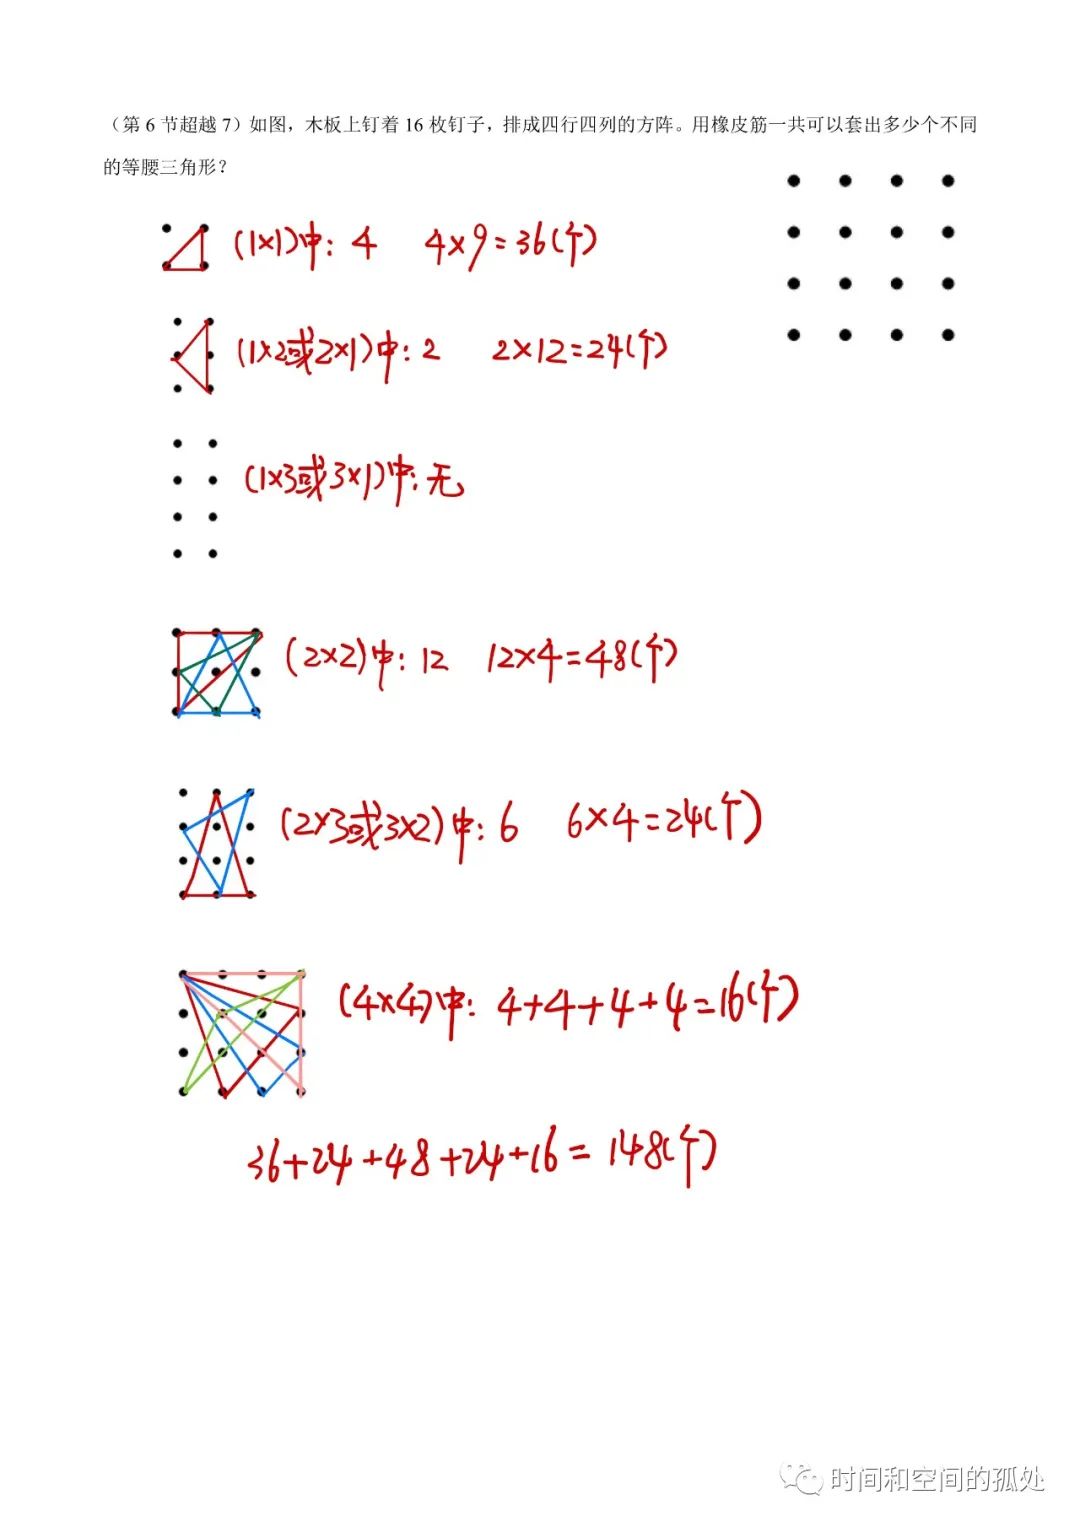 （第 6 节超越 7）如图，木板上钉着 16 枚钉子，排成四行四列的方阵。用橡皮筋一共可以套出多少个不同
的等腰三角形？
(1×1)中: 4 4×9=36(个)
(1×2或2×1)中: 2 2×12=24(个)
(1×3或3×1)中: 无
(2×2)中: 12 12×4=48(个)
(2×3或3×2)中: 6 6×4=24(个)
(4×4)中: 4+4+4+4=16(个)
36+24+48+24+16=148(个)
时间和空间的孤处